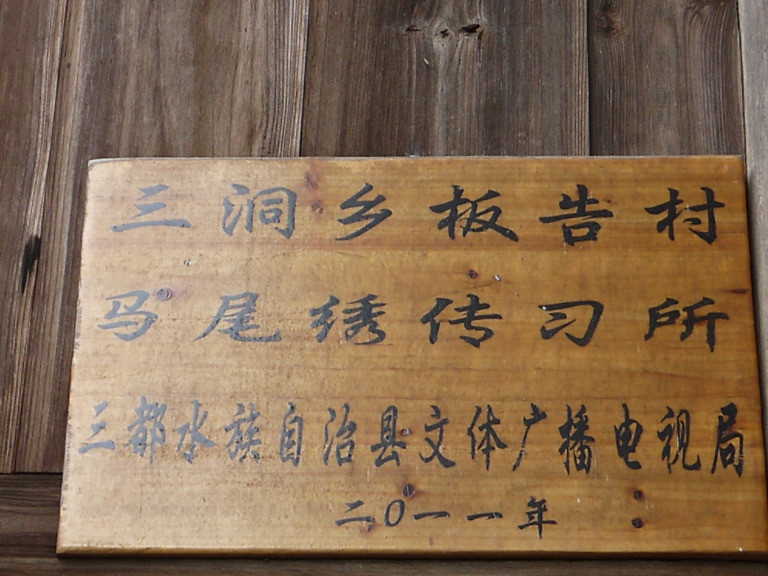 三洞乡板告村
马尾绣传习所
三都水族自治县文体广播电视局
二0一一年